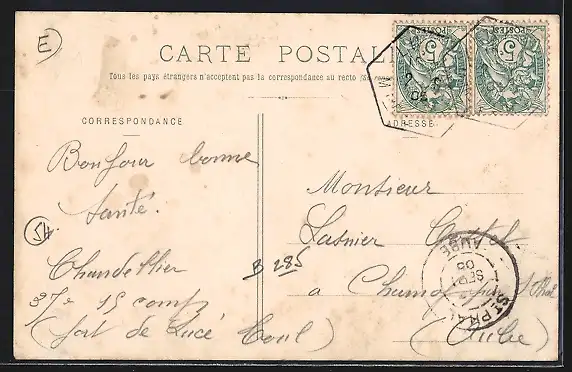 E
CARTE POSTALE
Tous les pays étrangers n'acceptent pas la correspondance au recto
CORRESPONDANCE
ADRESSE
Bonjour bonne
santé.
54
Chandellier
37e 15 comp
(fort de Lucé Toul)
B 285
Monsieur
Lasnier
à
(Aube)
POSTES
5
POSTES
5
AUBE
SEPT
08